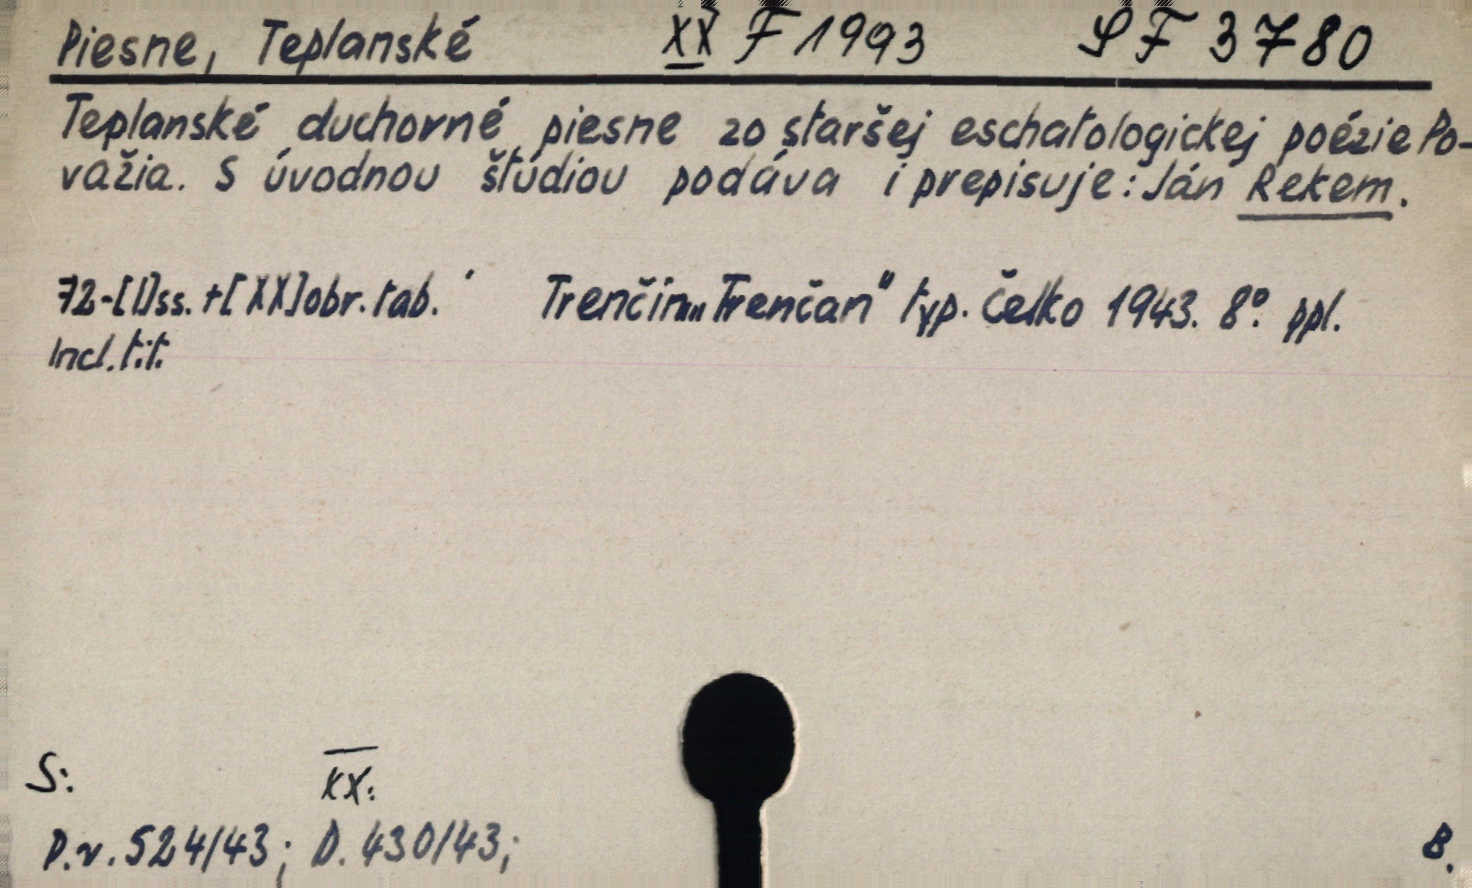 Piesne, Teplanské XX F 1993 SF 3780
Teplanské duchovné piesne zo staršej eschatologickej poézie Po-
važia. S úvodnou štúdiou podáva i prepisuje: Ján Rekem.
72-[I]ss. +[XX]obr. tab. Trenčín „Trenčan" typ. Čelko 1943. 8°. ppl.
Incl. tit.
S: XX:
P.v. 524/43; D. 430/43;
B.